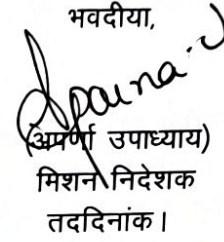 भवदीया,
Aparna-U
(अपर्णा उपाध्याय)
मिशन निदेशक
तददिनांक।